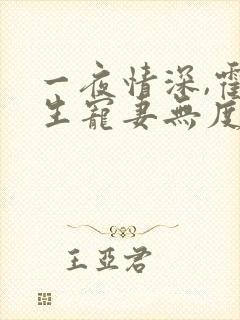 一夜情深,霍
生寵妻無度
王亞君